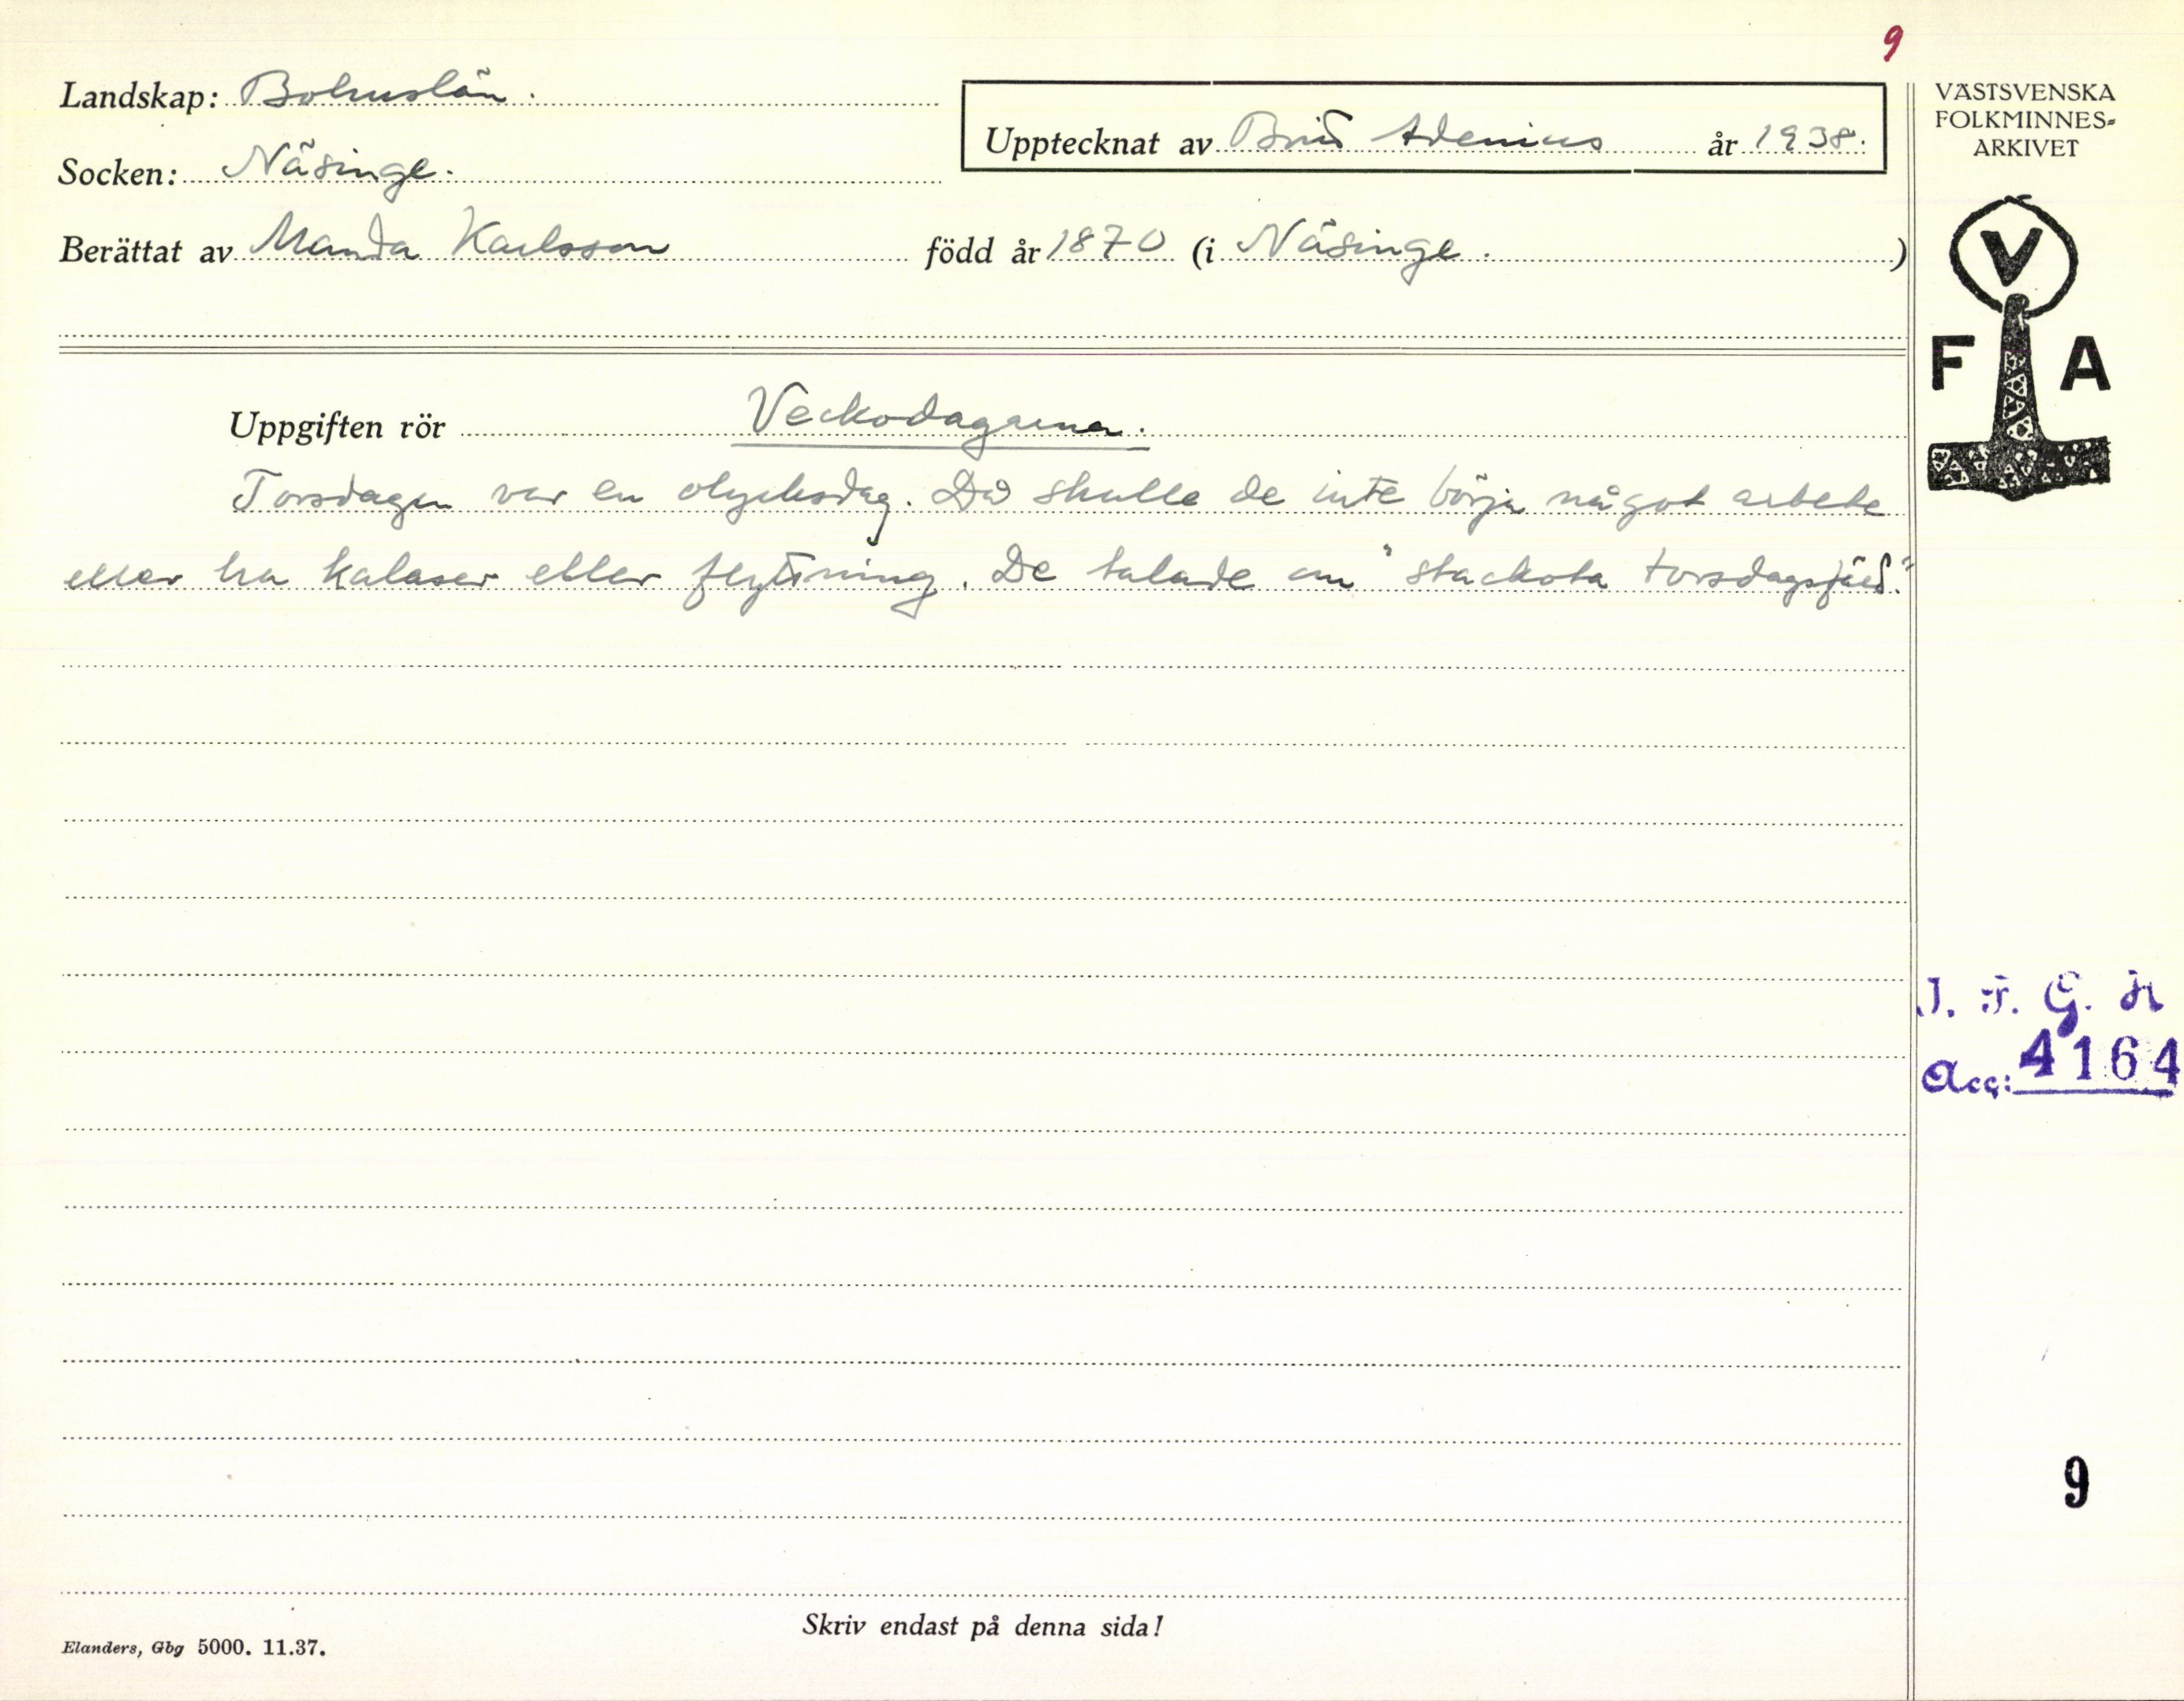 9
Landskap: Bohuslän.
Upptecknat av Brit Adenius år 1938.
Socken: Näsinge.
Berättat av Manda Karlsson född år 1870 (i Näsinge.)
VÄSTSVENSKA
FOLKMINNES-
ARKIVET
V
F A
Uppgiften rör Veckodagarna.
Torsdagen var en olycksdag. Då skulle de inte börja något arbete
eller ha kalaser eller flyttning. De talade om "stackota torsdagsfärd."
I. F. G. H
Acc: 4164
9
Skriv endast på denna sida!
Elanders, Gbg 5000. 11.37.